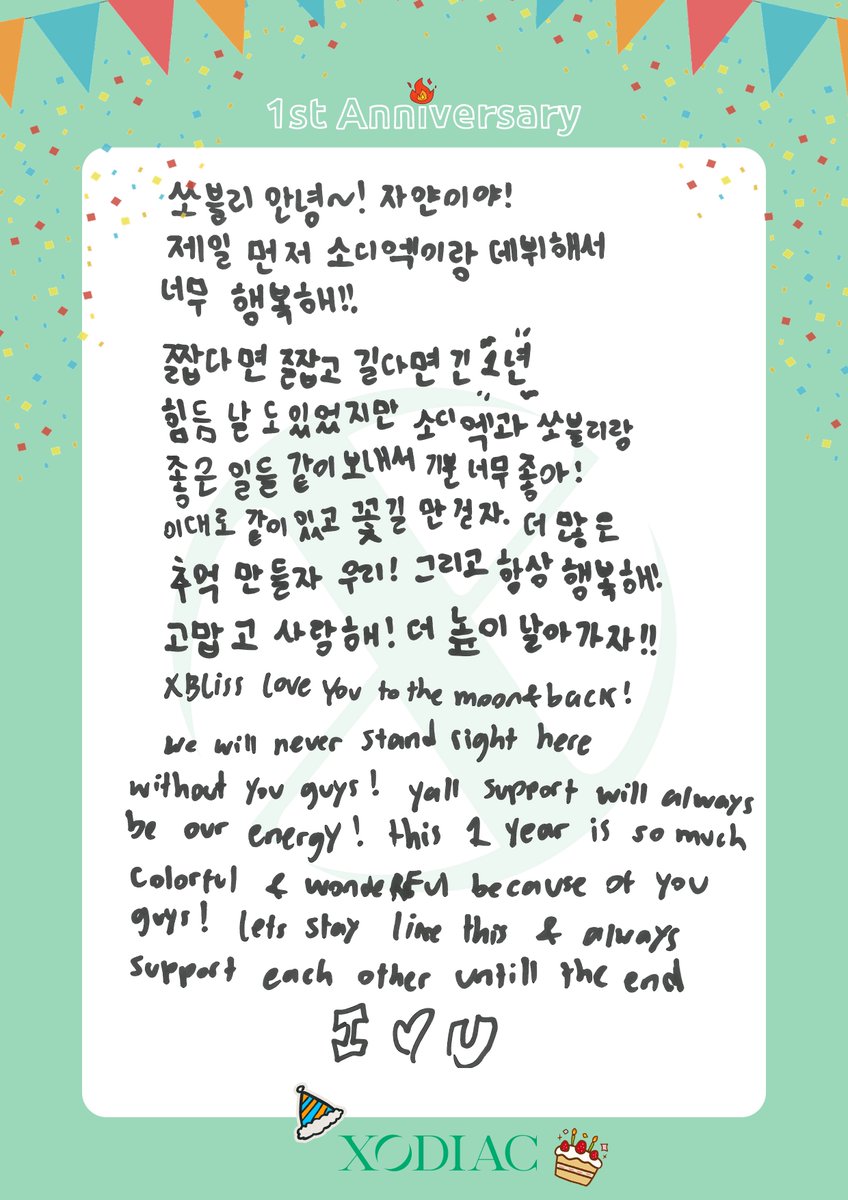 1st Anniversary
쏘블리 안녕~! 자얀이야!
제일 먼저 소디엑이랑 데뷔해서
너무 행복해!!
짧다면 짧고 길다면 긴 "1년"
힘듬 날 도 있었지만 소디엑과 쏘블리랑
좋은 일들 같이 보내서 기분 너무 좋아!
이대로 같이 있고 꽃길 만 걷자. 더 많은
추억 만들자 우리! 그리고 항상 행복해!
고맙고 사랑해! 더 높이 날아가자!!
XBLiss love you to the moon & back!
We will never stand right here
without you guys! yall support will always
be our energy! this 1 year is so much
colorful & wonderful because of you
guys! lets stay like this & always
support each other untill the end
I ♡ U
XODIAC